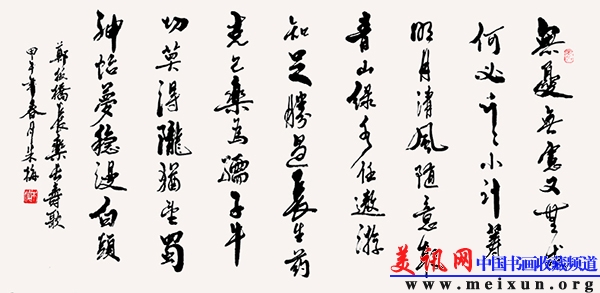 無憂無慮又無求
何必斤斤小計籌
明月清風隨意取
青山綠水任遨游
知足勝過長生药
克己樂為孺子牛
切莫得隴猶望蜀
神怡夢穩渡白頭
鄭板橋長樂長壽歌
甲午年春月朱梅
美讯网 中国书画收藏频道
www.meixun.org